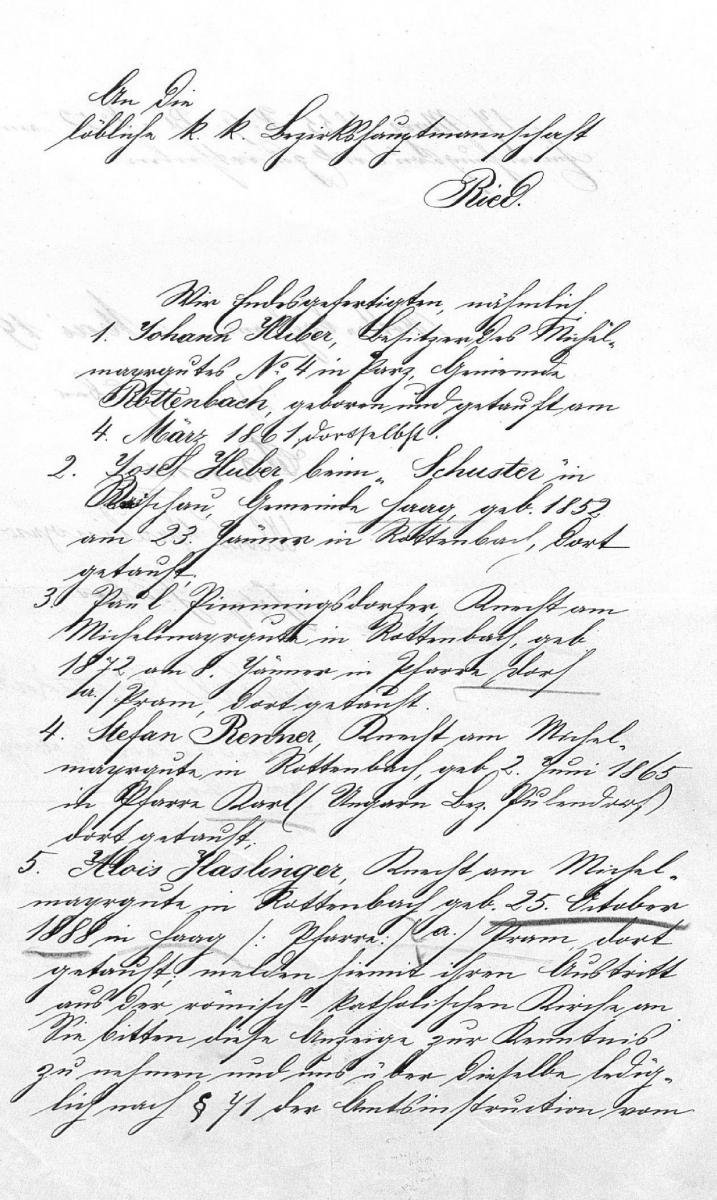 An die
löbliche k. k. Bezirkshauptmannschaft
Ried.
Wir Endesgefertigten, nähmlich
1. Johann Huber, Besitzer des Michel-
mayrgutes No 4 in Parz, Gemeinde
Rottenbach, geboren und getauft am
4. März 1861, dortselbst.
2. Josef Huber beim „Schuster" in
Gemeinde Haag, geb. 1852
am 23. Jänner in Rottenbach, dort
getauft,
3. Paul Pimmingsdorfer, Knecht am
Michelmayrgute in Rottenbach, geb.
1872 am 8. Jänner in Pfarre Dorf
/a./ Pram, dort getauft.
4. Stefan Renner, Knecht am Michel-
mayrgute in Rottenbach, geb. 2. Juni 1865
in Pfarre Karl (Ungarn Bez. Pulendorf)
dort getauft;
5. Alois Haslinger, Knecht am Michel-
mayrgute in Rottenbach geb. 25. October
1888 in Haag /: Pfarre:/ /a./ Pram dort
getauft; melden hiemit ihren Austritt
aus der römisch-katholischen Kirche an.
Sie bitten diese Anzeige zur Kenntnis
zu nehmen und uns über dieselbe ledig-
lich nach § 71 der Amtsinstruction vom